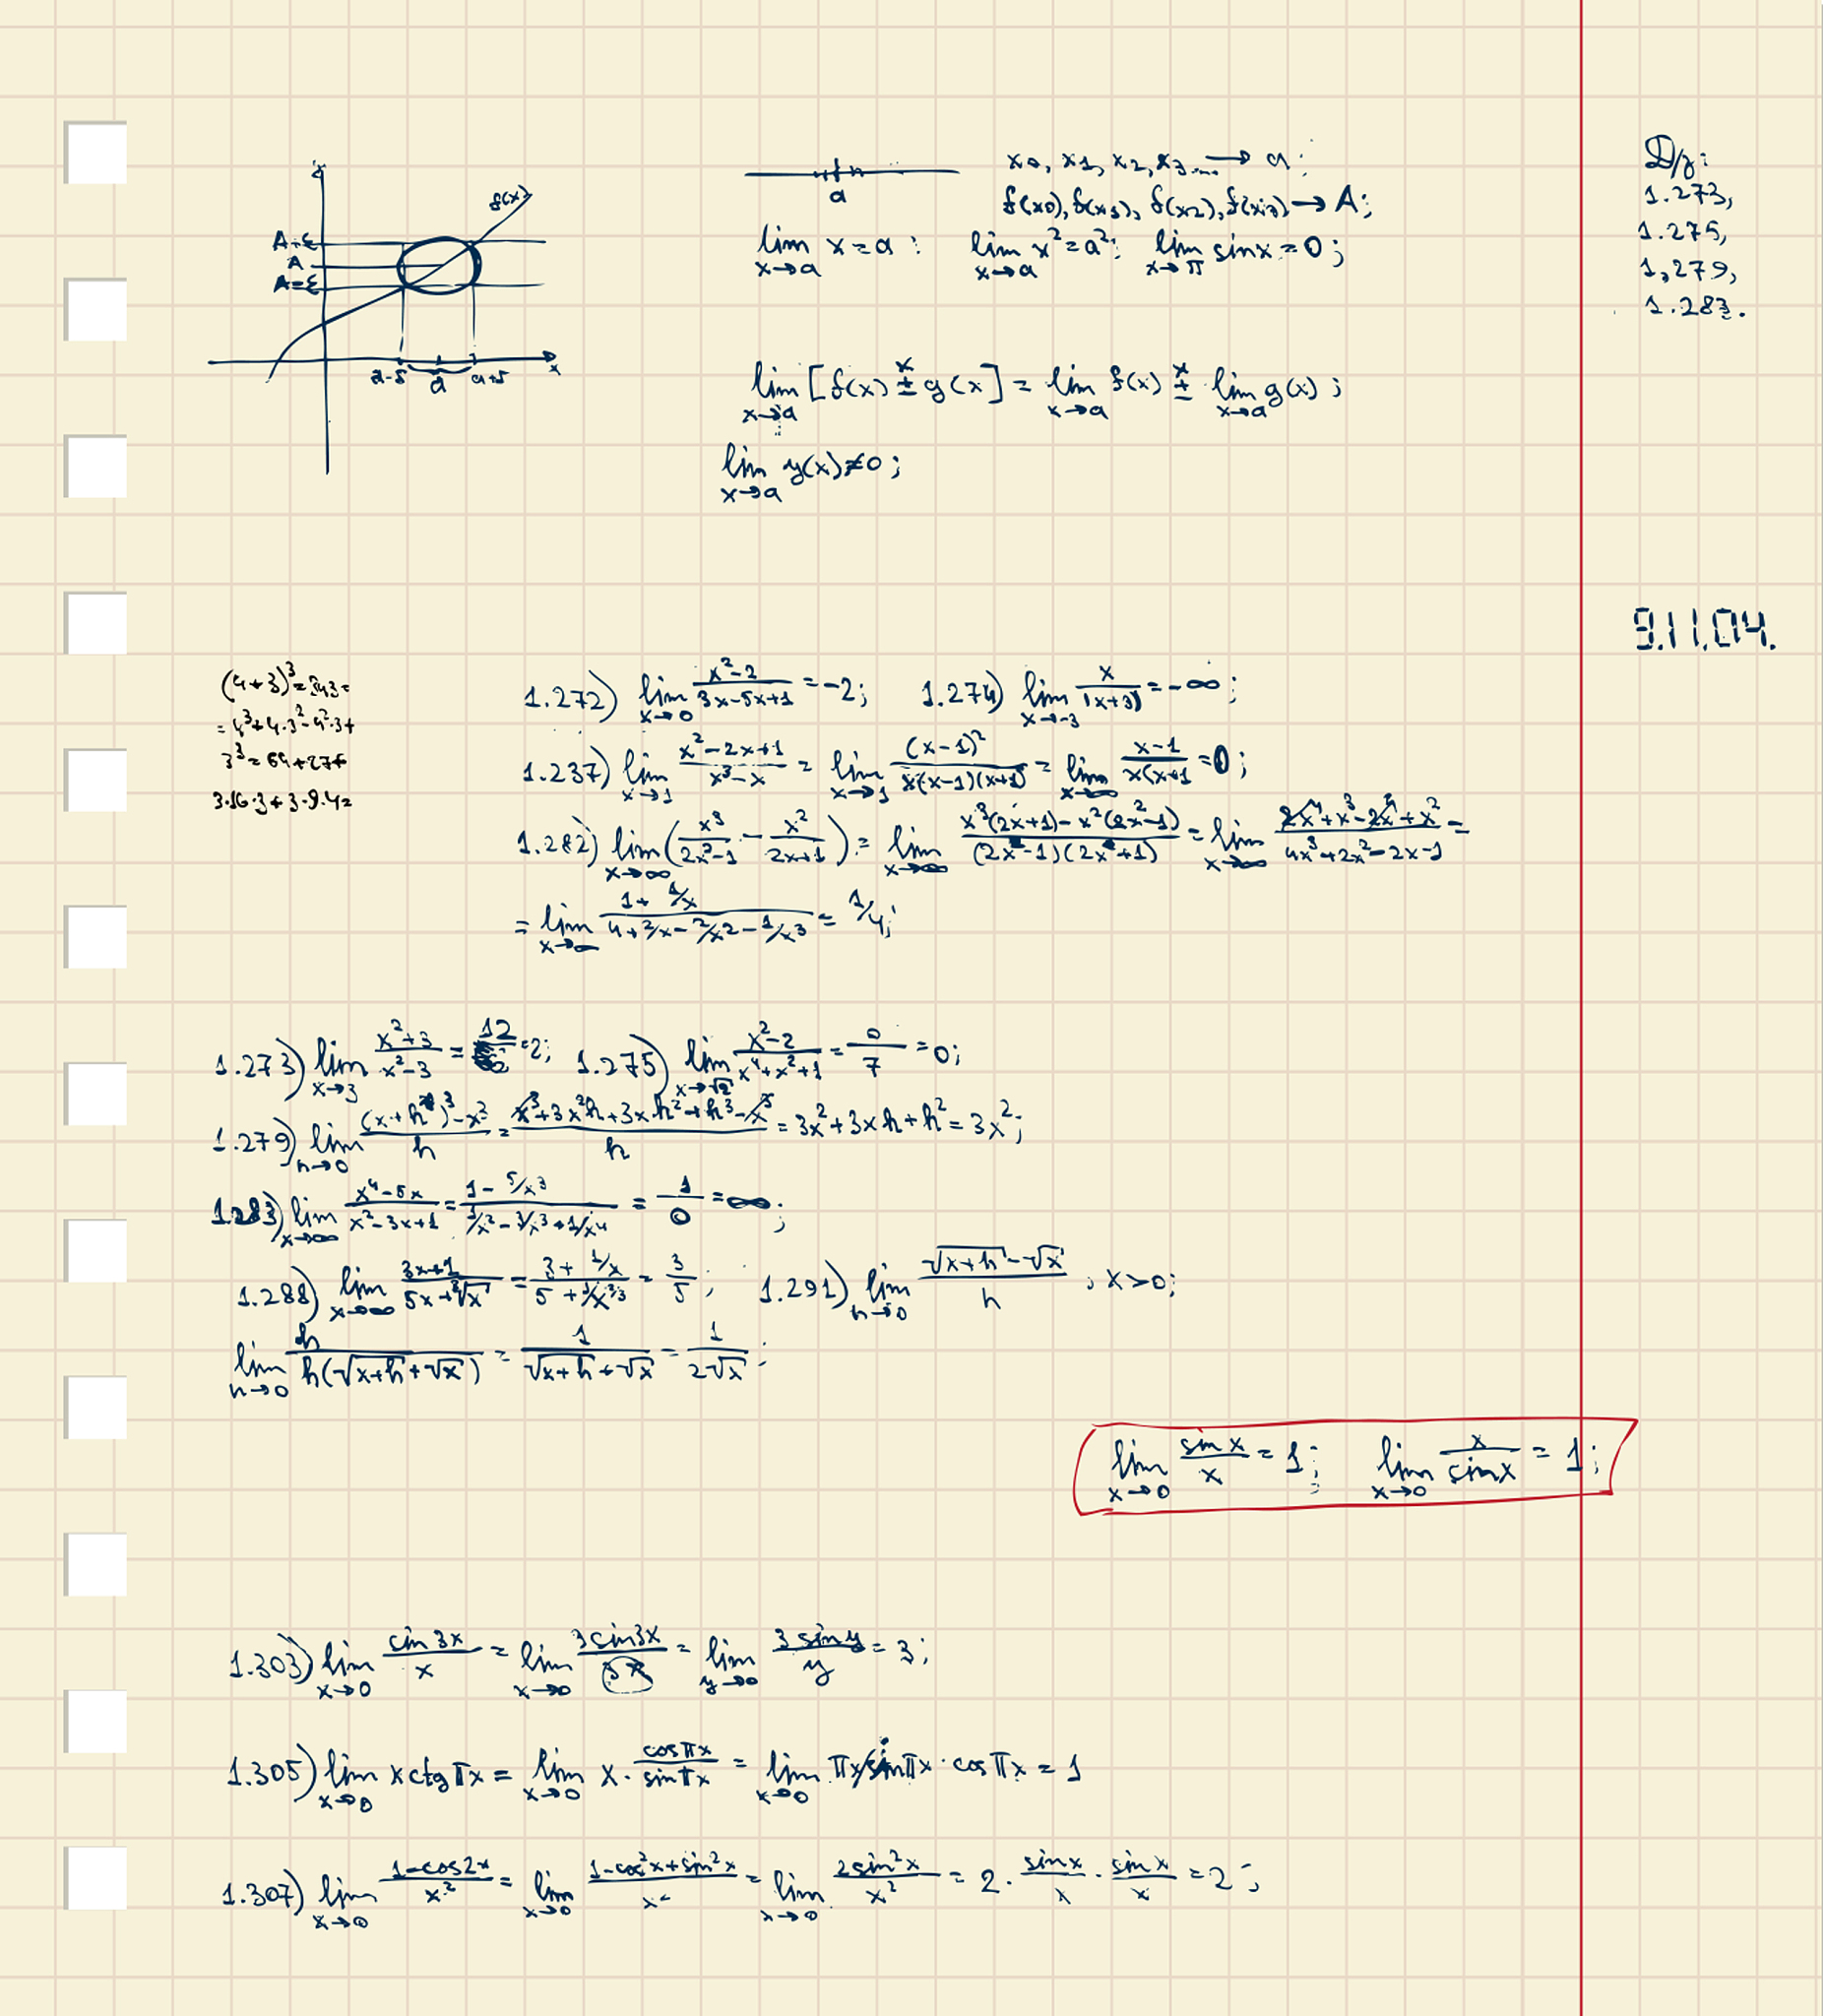 x0, x1, x2, x3... → a;
f(x0), f(x1), f(x2), f(x3) → A;
a
lim x→a x = a; lim x→a x² = a²; lim x→π sinx = 0;
f(x)
A+ε
A
A-ε
a-δ a a+δ x
lim x→a [f(x) ×± g(x)] = lim x→a f(x) ×± lim x→a g(x);
lim x→a y(x) ≠ 0;
D/z:
1.273,
1.275,
1,279,
1.283.
9.11.04.
(4+3)³ = 343 =
= 4³+4·3²-4²·3+
3³ = 64+27+
3·16·3+3·9·4=
1.272) lim x→0 (x²-2)/(3x-5x+1) = -2; 1.274) lim x→-3 x/|x+3| = -∞;
1.237) lim x→1 (x²-2x+1)/(x³-x) = lim x→1 (x-1)²/(x(x-1)(x+1)) = lim x→∞ (x-1)/(x(x+1 = 0;
1.282) lim x→∞ (x³/(2x²-1) - x²/(2x+1)) = lim x→∞ (x³(2x+1)-x²(2x²-1))/((2x²-1)(2x+1)) = lim x→∞ (2x⁴+x³-2x⁴+x²)/(4x³+2x²-2x-1) =
= lim x→∞ (1+1/x)/(4+2/x-2/x2-1/x3) = 1/4;
1.273) lim x→3 (x²+3)/(x²-3) = 12/6 = 2; 1.275) lim x→√2 (x²-2)/(x⁴+x²+1) = 0/7 = 0;
1.279) lim h→0 ((x+h)³-x³)/h = (x³+3x²h+3xh²+h³-x³)/h = 3x²+3xh+h² = 3x²;
1.283) lim x→∞ (x⁴-5x)/(x²-3x+1) = (1-5/x³)/(1/x²-3/x³+1/x⁴) = 1/0 = ∞;
1.288) lim x→∞ (3x+1)/(5x+³√x) = (3+1/x)/(5+1/x^2/3) = 3/5; 1.291) lim h→0 (√(x+h)-√x)/h, x>0;
lim h→0 h/(h(√(x+h)+√x)) = 1/(√(x+h)+√x) = 1/(2√x);
lim x→0 sinx/x = 1; lim x→0 x/sinx = 1;
1.303) lim x→0 sin3x/x = lim x→0 3sin3x/3x = lim y→0 3siny/y = 3;
1.305) lim x→0 xctgπx = lim x→0 x·cosπx/sinπx = lim x→0 πx/sinπx · cosπx = 1
1.307) lim x→0 (1-cos2x)/x² = lim x→0 (1-cos²x+sin²x)/x² = lim x→0 2sin²x/x² = 2·sinx/x·sinx/x = 2;